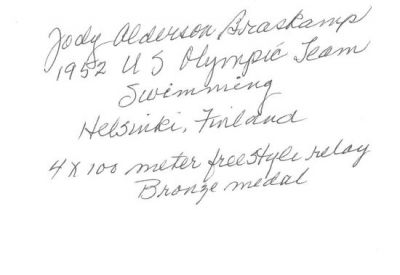 Jody Alderson Braskamp
1952 U S Olympic Team
Swimming
Helsinki, Finland
4 x 100 meter freestyle relay
Bronze medal